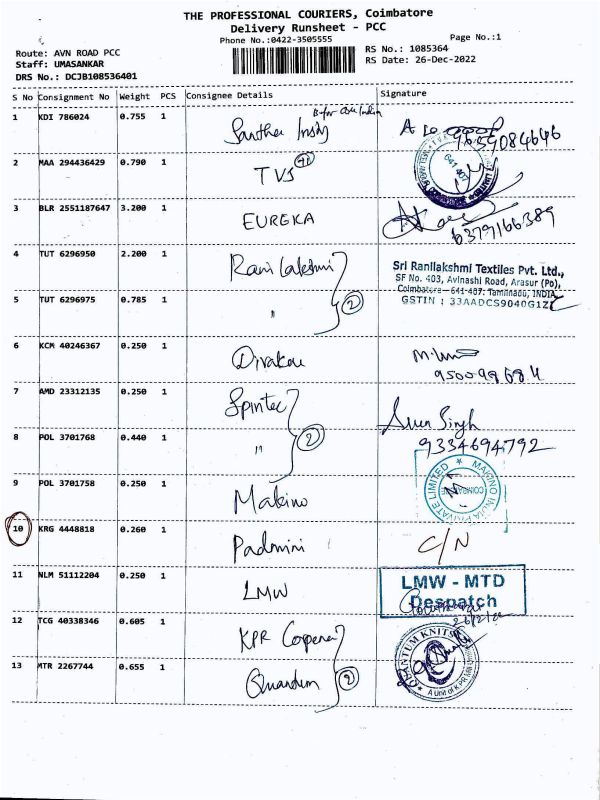 THE PROFESSIONAL COURIERS, Coimbatore
Delivery Runsheet - PCC
Phone No.:0422-3505555
Page No.:1
Route: AVN ROAD PCC
Staff: UMASANKAR
DRS No.: DCJB108536401
RS No.: 1085364
RS Date: 26-Dec-2022
S No Consignment No Weight PCS Consignee Details Signature
1 KDI 786024 0.755 1
9659084646
2 MAA 294436429 0.790 1 TVS
641 407
3 BLR 2551187647 3.200 1 EUREKA
6379166389
4 TUT 6296950 2.200 1 Rani Lakshmi
Sri Ranilakshmi Textiles Pvt. Ltd.,
SF No. 403, Avinashi Road, Arasur (Po),
Coimbatore - 641 407. Tamilnadu, INDIA
GSTIN : 33AADCS9040G1Z
5 TUT 6296975 0.785 1 " 2
6 KCM 40246367 0.250 1 Divakar
7 AMD 23312135 0.250 1 Spintec
Singh
8 POL 3701768 0.440 1 " 2 9334694792
9 POL 3701758 0.250 1 Makino
MAKINO INDIA PRIVATE LIMITED
10 KRG 4448818 0.260 1 Padmini C/N
11 NLM 51112204 0.250 1 LMW
LMW - MTD
Despatch
12 TCG 40338346 0.605 1 KPR
QUANTUM KNITS
A Unit of KPR
13 MTR 2267744 0.655 1 Quantum 2